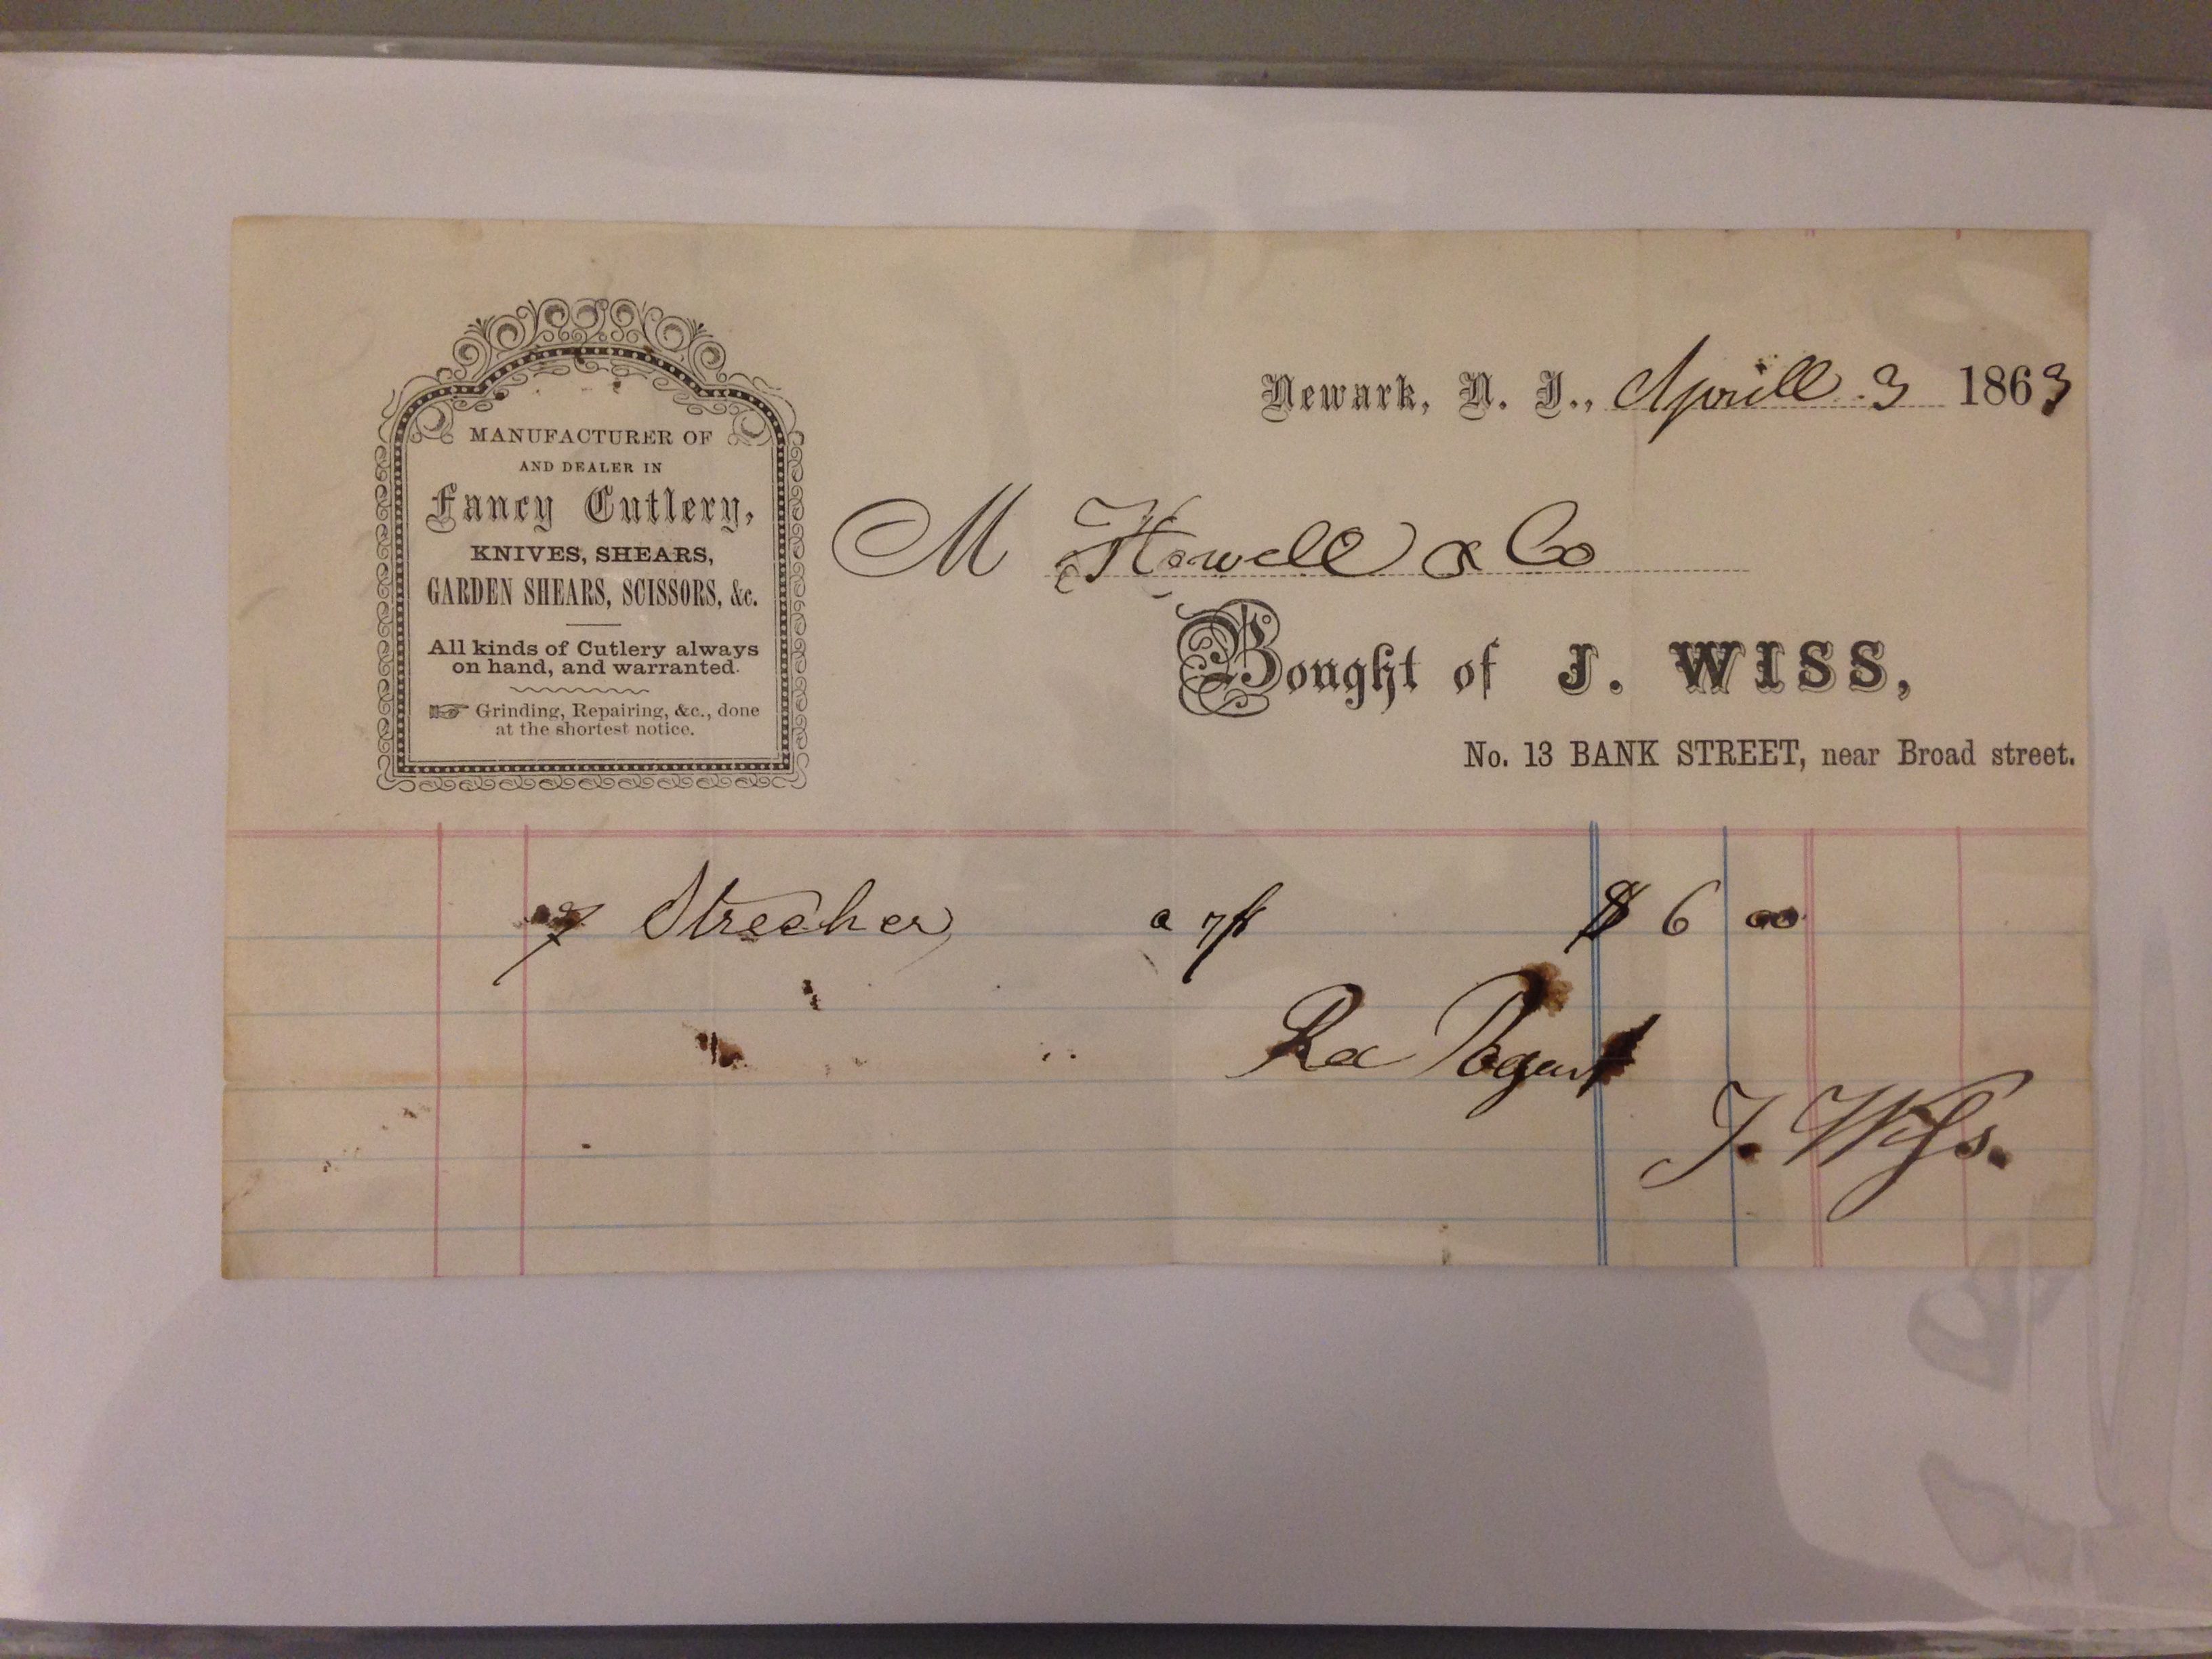 MANUFACTURER OF
AND DEALER IN
Fancy Cutlery,
KNIVES, SHEARS,
GARDEN SHEARS, SCISSORS, &c.
All kinds of Cutlery always
on hand, and warranted.
☞ Grinding, Repairing, &c., done
at the shortest notice.
Newark, N. J., Aprill 3 1863
M Howell & Co
Bought of J. WISS,
No. 13 BANK STREET, near Broad street.
Strecher a $ 6 00
Rec
J. Wiss.